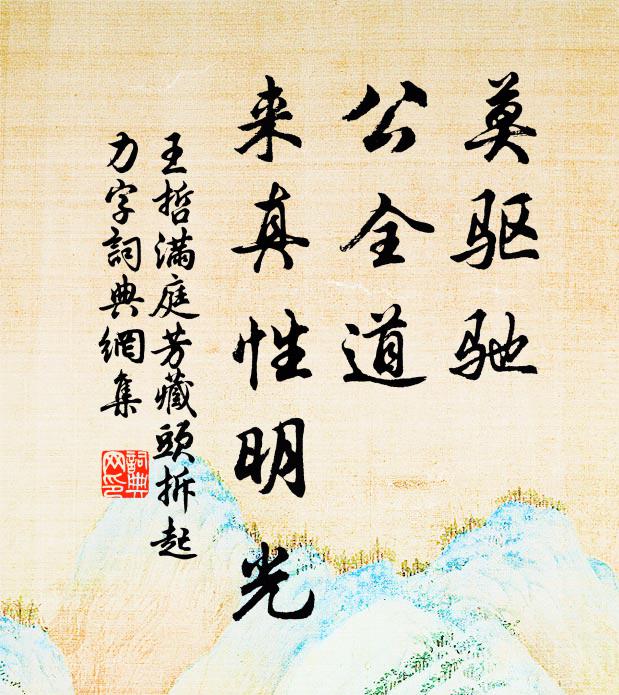 莫驱驰
公全道
来真性明光
王哲满庭芳藏頭拆起
力字詞典網集
詞典网印